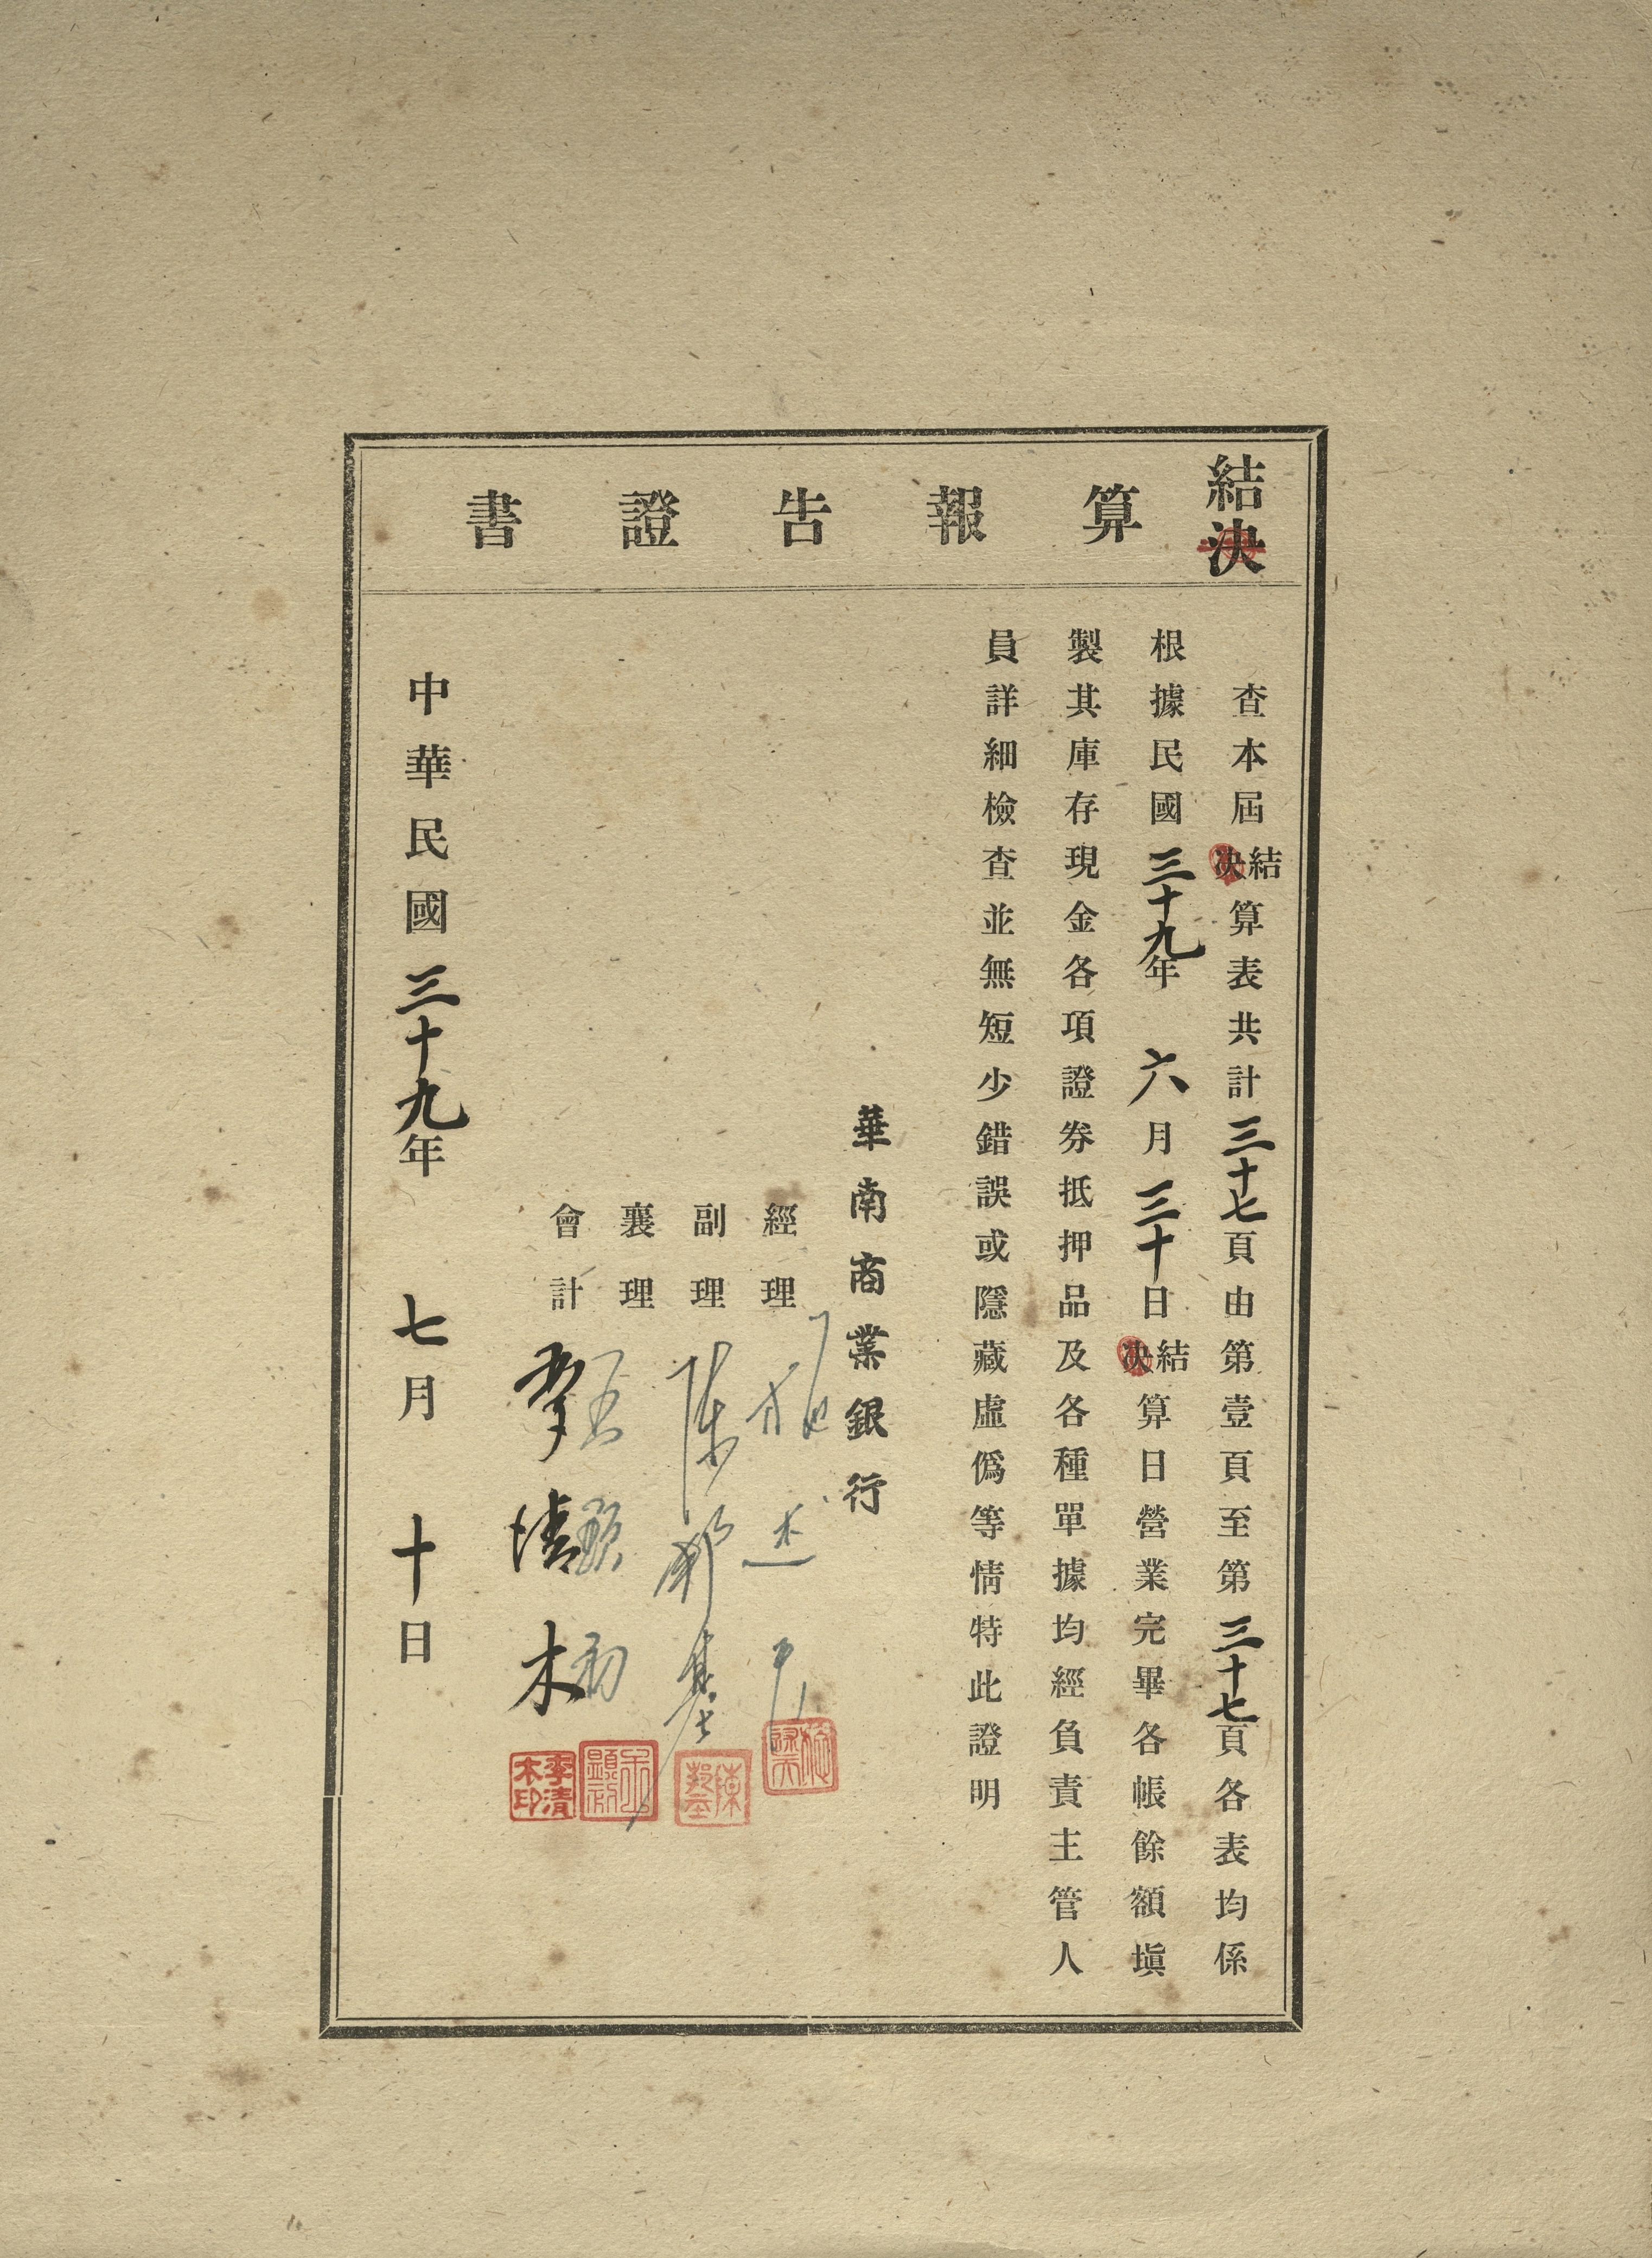 結決算報告證書
查本屆結決算表共計三十七頁由第壹頁至第三十七頁各表均係
根據民國三十九年六月三十日結決算日營業完畢各帳餘額塡
製其庫存現金各項證券抵押品及各種單據均經負責主管人
員詳細檢查並無短少錯誤或隱藏虛僞等情特此證明
華南商業銀行
經理
副理 陳邦基
襄理
會計 李清木
陳邦基
李清木印
中華民國三十九年七月十日